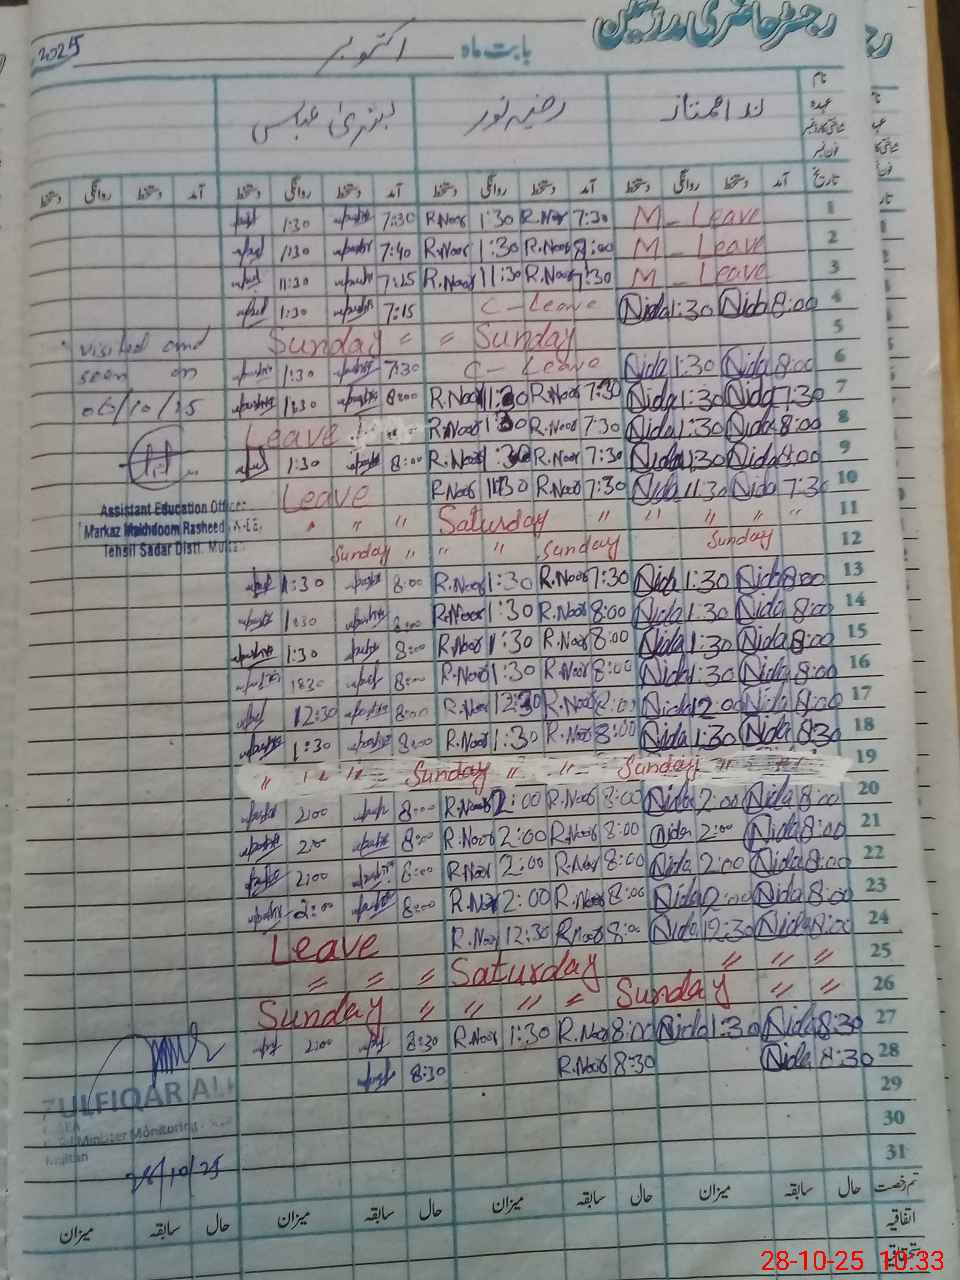 رجسٹر حاضری مدرسین
بابت ماہ اکتوبر 2025
نام
عہدہ
شناختی کارڈ نمبر
فون نمبر
ندا ممتاز رضیہ نور بشریٰ عباسی
تاریخ آمد دستخط روانگی دستخط آمد دستخط روانگی دستخط آمد دستخط روانگی دستخط آمد دستخط روانگی دستخط
1:30 7:30 R.Noor 1:30 R.Noor 7:30 M - Leave 1
1:30 7:40 R.Noor 1:30 R.Noor 8:00 M - Leave 2
11:30 7:25 R.Noor 11:30 R.Noor 7:30 M - Leave 3
1:30 7:15 C - Leave Nida 1:30 Nida 8:00 4
Sunday = = Sunday 5
1:30 7:30 C - Leave Nida 1:30 Nida 8:00 6
1:30 8:00 R.Noor 1:30 R.Noor 7:30 Nida 1:30 Nida 7:30 7
Leave R.Noor 1:30 R.Noor 7:30 Nida 1:30 Nida 8:00 8
1:30 8:00 R.Noor 1:30 R.Noor 7:30 Nida 1:30 Nida 8:00 9
Leave R.Noor 11:30 R.Noor 7:30 Nida 11:30 Nida 7:30 10
" " " Saturday " " " " " 11
Sunday " " " " Sunday Sunday 12
1:30 8:00 R.Noor 1:30 R.Noor 7:30 Nida 1:30 Nida 8:00 13
1:30 8:00 R.Noor 1:30 R.Noor 8:00 Nida 1:30 Nida 8:00 14
1:30 8:00 R.Noor 1:30 R.Noor 8:00 Nida 1:30 Nida 8:00 15
1:30 8:00 R.Noor 1:30 R.Noor 8:00 Nida 1:30 Nida 8:00 16
12:30 8:00 R.Noor 12:30 R.Noor 8:00 Nida 12:00 Nida 8:00 17
1:30 8:00 R.Noor 1:30 R.Noor 8:00 Nida 1:30 Nida 8:30 18
" " " = Sunday " " = Sunday " " 19
2:00 8:00 R.Noor 2:00 R.Noor 8:00 Nida 2:00 Nida 8:00 20
2:00 8:00 R.Noor 2:00 R.Noor 8:00 Nida 2:00 Nida 8:00 21
2:00 8:00 R.Noor 2:00 R.Noor 8:00 Nida 2:00 Nida 8:00 22
2:00 8:00 R.Noor 2:00 R.Noor 8:00 Nida 2:00 Nida 8:00 23
Leave R.Noor 12:30 R.Noor 8:00 Nida 12:30 Nida 8:00 24
" " " Saturday " " " 25
Sunday " " " = Sunday " " 26
2:00 8:30 R.Noor 1:30 R.Noor 8:00 Nida 1:30 Nida 8:30 27
8:30 R.Noor 8:30 Nida 8:30 28
29
30
31
visited and
seen on
06/10/25
Assistant Education Officer
Markaz Makhdoom Rasheed
Tehsil Sadar Distt. Multan
ZULFIQAR ALI
Minister Monitoring
Multan
28/10/25
قسم رخصت حال سابقہ میزان حال سابقہ میزان حال سابقہ میزان حال سابقہ میزان
اتفاقیہ
استحقاقیہ
28-10-25 10:33